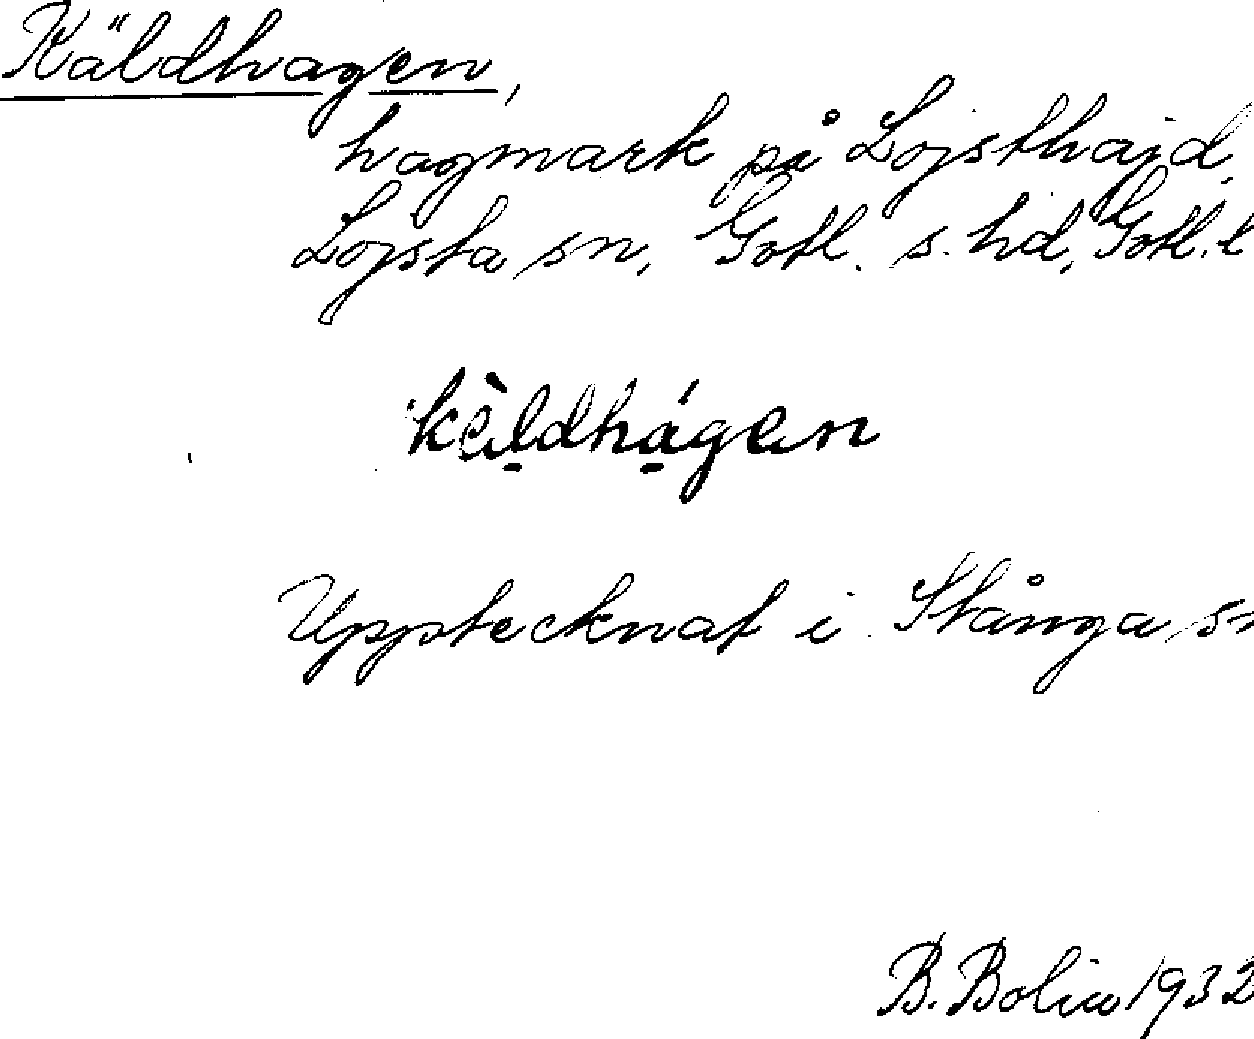 Käldhagen,
hagmark på Lojsthajd,
Lojsta sn, Gotl. s. hd, Gotl. l
kä̀ldhágen
Upptecknat i Stånga sn
B. Bolin 1932